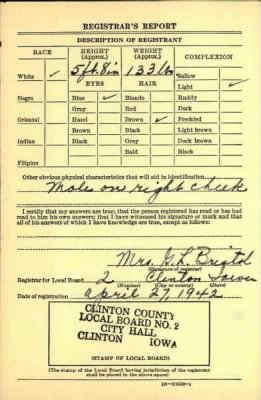 REGISTRAR'S REPORT
DESCRIPTION OF REGISTRANT
RACE HEIGHT (Approx.) WEIGHT (Approx.) COMPLEXION
5 ft. 8 in 133 lbs
White ✓ EYES HAIR Sallow
Light ✓
Negro Blue ✓ Blonde Ruddy
Gray Red Dark
Oriental Hazel Brown ✓ Freckled
Brown Black Light brown
Indian Black Gray Dark brown
Bald Black
Filipino
Other obvious physical characteristics that will aid in identification
Mole on right cheek
I certify that my answers are true; that the person registered has read or has had
read to him his own answers; that I have witnessed his signature or mark and that
all of his answers of which I have knowledge are true, except as follows:
Mrs. G. L. Bristol
(Signature of registrar)
Registrar for Local Board 2 Clinton Iowa
(Number) (City or county) (State)
Date of registration April 27, 1942
CLINTON COUNTY
LOCAL BOARD NO. 2
CITY HALL
CLINTON IOWA
(STAMP OF LOCAL BOARD)
(The stamp of the Local Board having jurisdiction of the registrant
shall be placed in the above space)